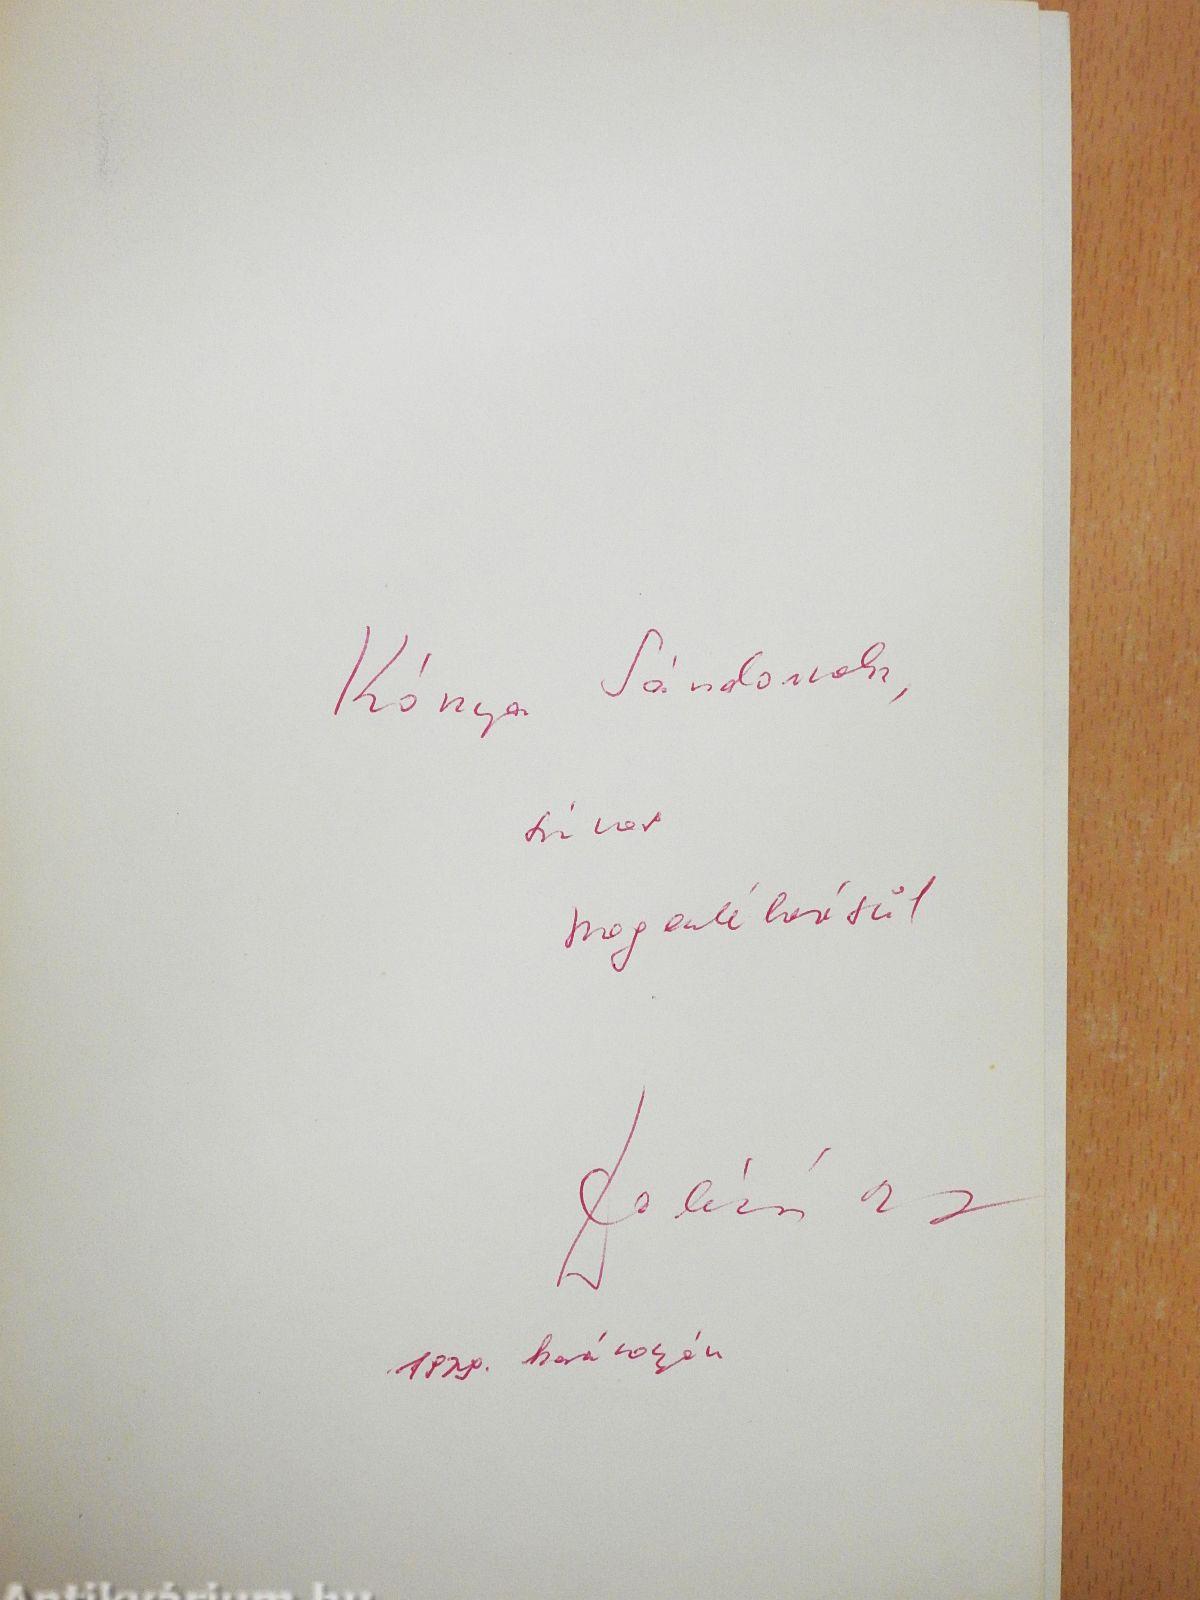 Kónya Sándornak,
szíves
megemlékezésül
1979. karácsonyán
Antikvárium.hu